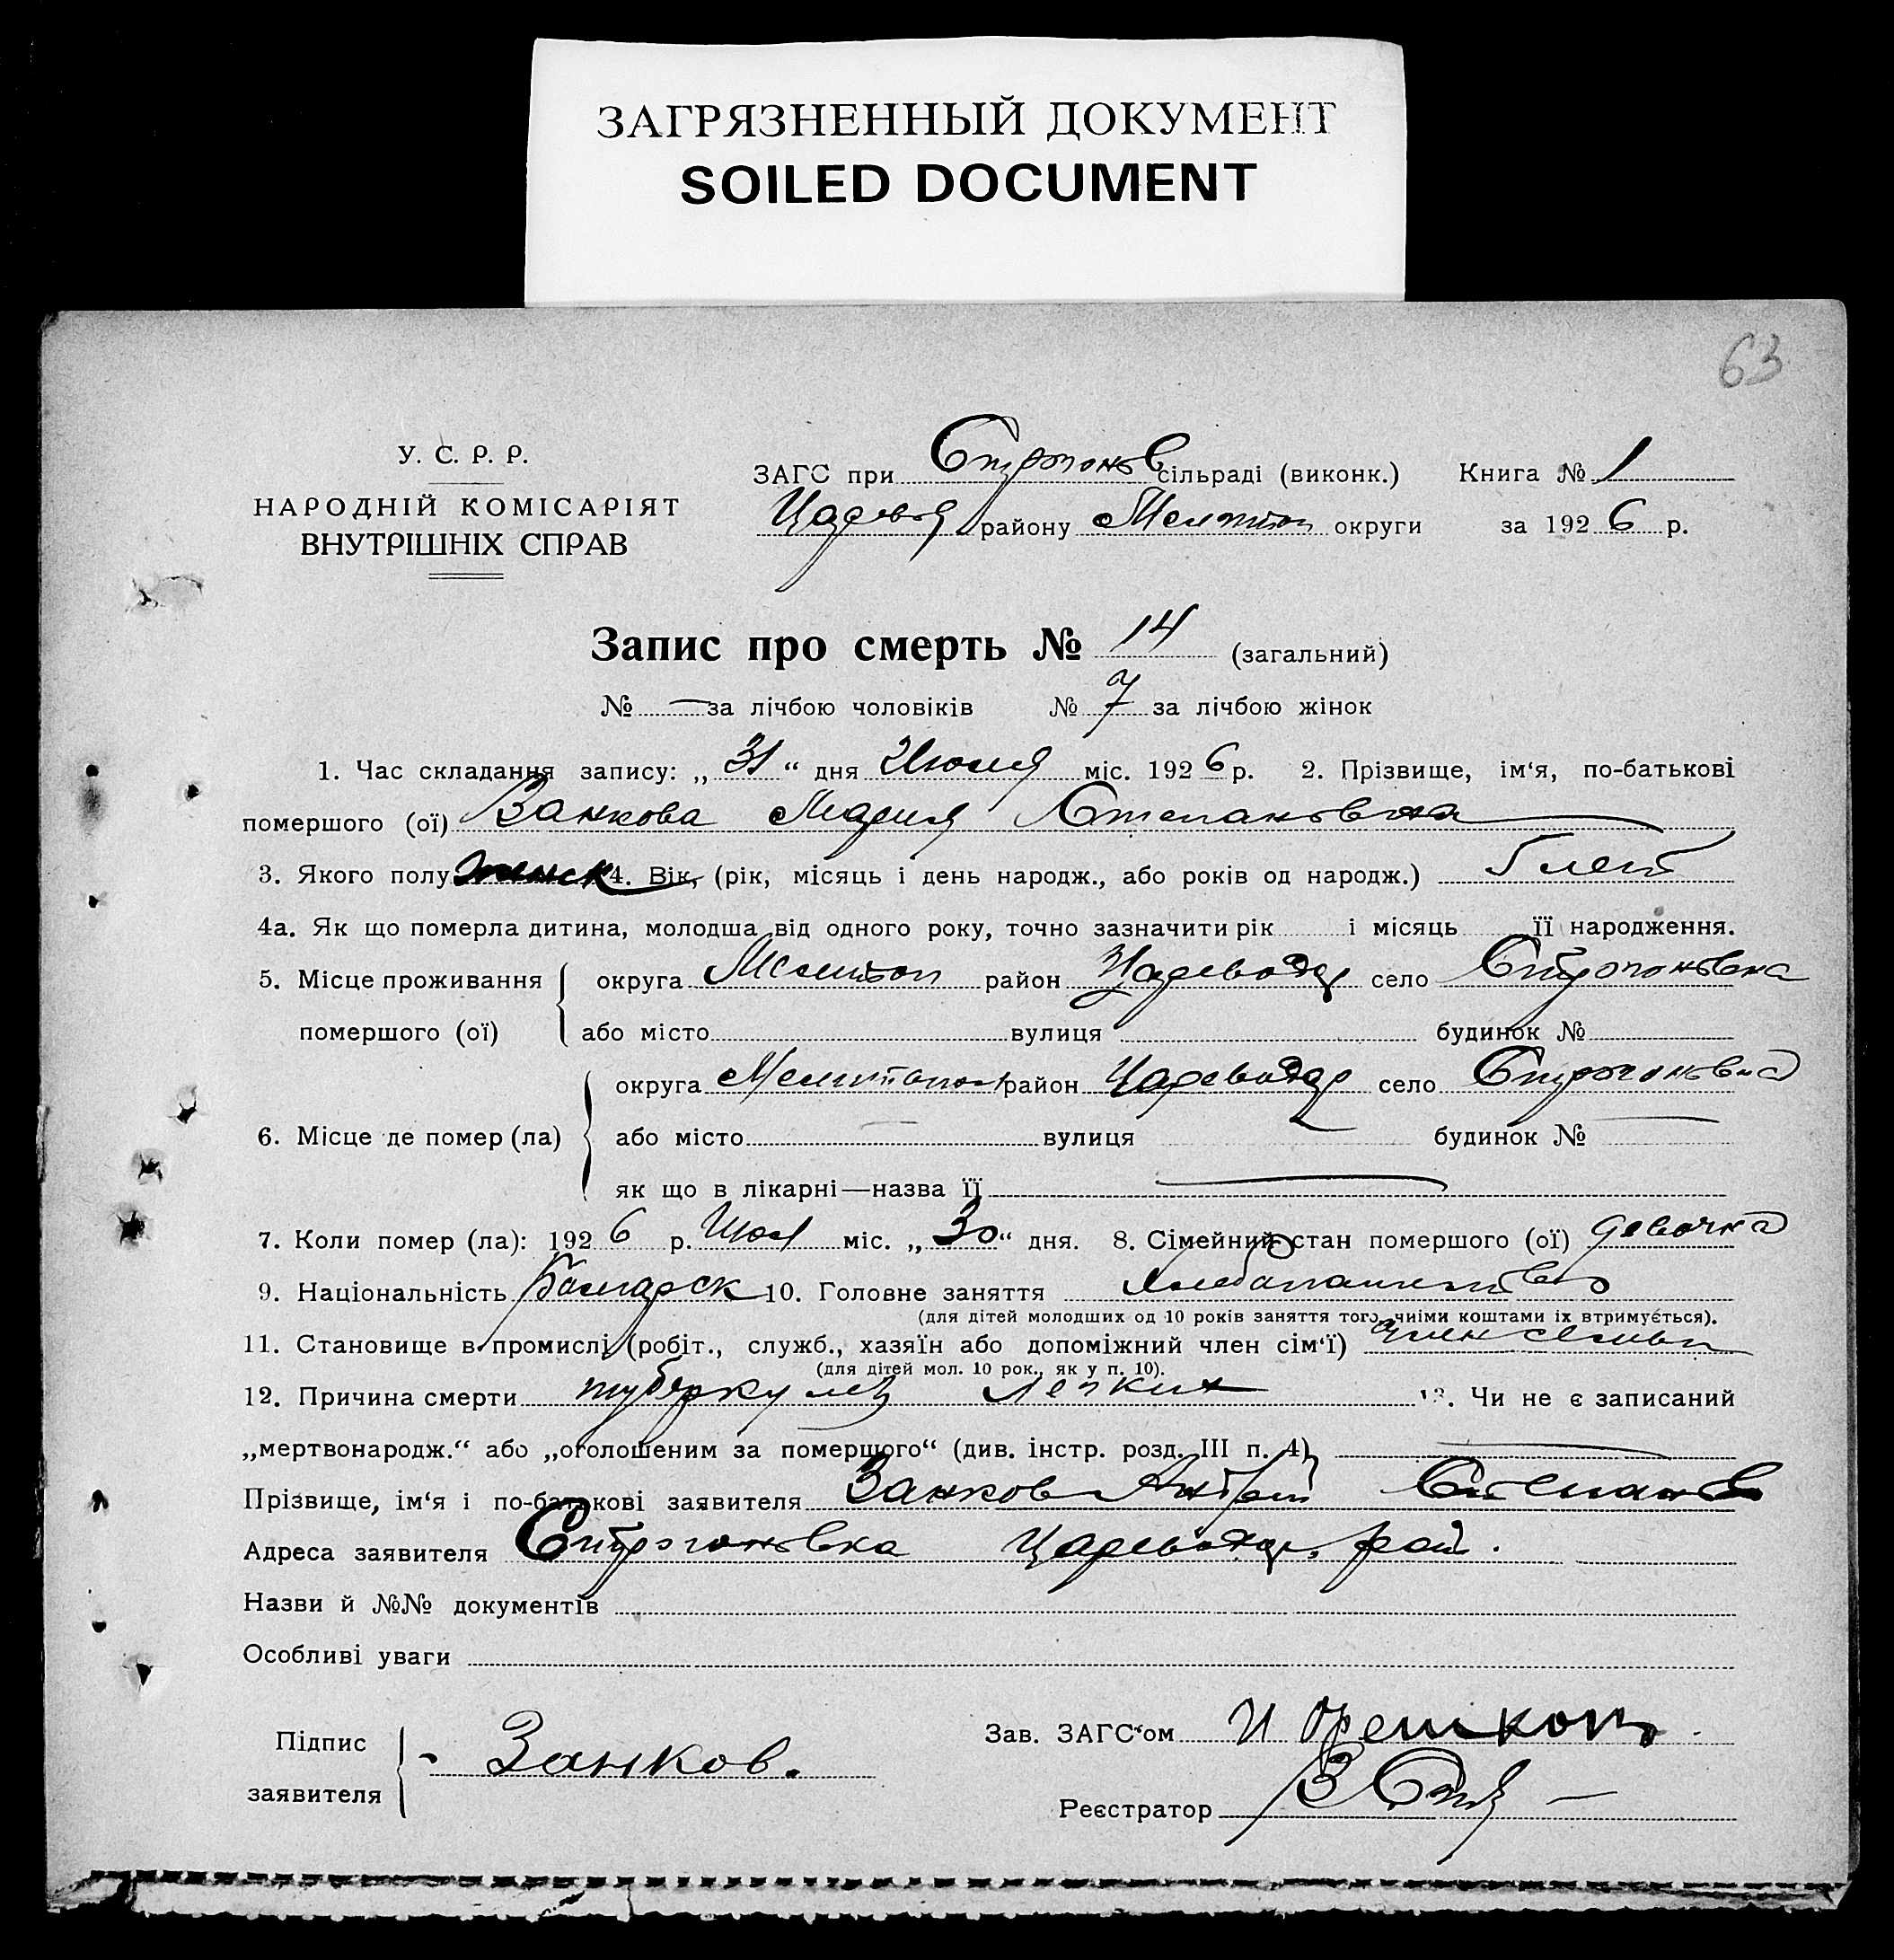 ЗАГРЯЗНЕННЫЙ ДОКУМЕНТ
SOILED DOCUMENT
63
У. С. Р. Р.
НАРОДНІЙ КОМІСАРІЯТ
ВНУТРІШНІХ СПРАВ
ЗАГС при сільраді (виконк.) Книга № 1
району округи за 1926 р.
Запис про смерть № 14 (загальний)
№ — за лічбою чоловіків № 7 за лічбою жінок
1. Час складання запису: „31“ дня Июля міс. 1926 р. 2. Прізвище, ім‘я, по-батькові
помершого (ої) Занкова Мария Степановна
3. Якого полу женск 4. Вік, (рік, місяць і день народж., або років од народж.) лет
4а. Як що померла дитина, молодша від одного року, точно зазначити рік і місяць її народження.
5. Місце проживання округа Мелитоп район Царевода село
помершого (ої) або місто вулиця будинок №
округа Мелитопол район Царевода село
6. Місце де помер (ла) або місто — вулиця — будинок № —
як що в лікарні—назва її —
7. Коли помер (ла): 1926 р. Июл міс. „30“ дня. 8. Сімейний стан помершого (ої) девочка
9. Національність Болгарск 10. Головне заняття хлебопашество
(для дітей молодших од 10 років заняття того, чиїми коштами їх втримується).
11. Становище в промислі (робіт., служб., хазяїн або допоміжний член сім‘ї) член семьи
(для дітей мол. 10 рок., як у п. 10).
12. Причина смерти туберкулез легких 13. Чи не є записаний
„мертвонародж.“ або „оголошеним за помершого“ (див. інстр. розд. III п. 4) —
Прізвище, ім‘я і по-батькові заявителя Занков Андрей Степанов
Адреса заявителя Царевода, рай.
Назви й №№ документів
Особливі уваги
Підпис заявителя Занков.
Зав. ЗАГС‘ом
Реєстратор